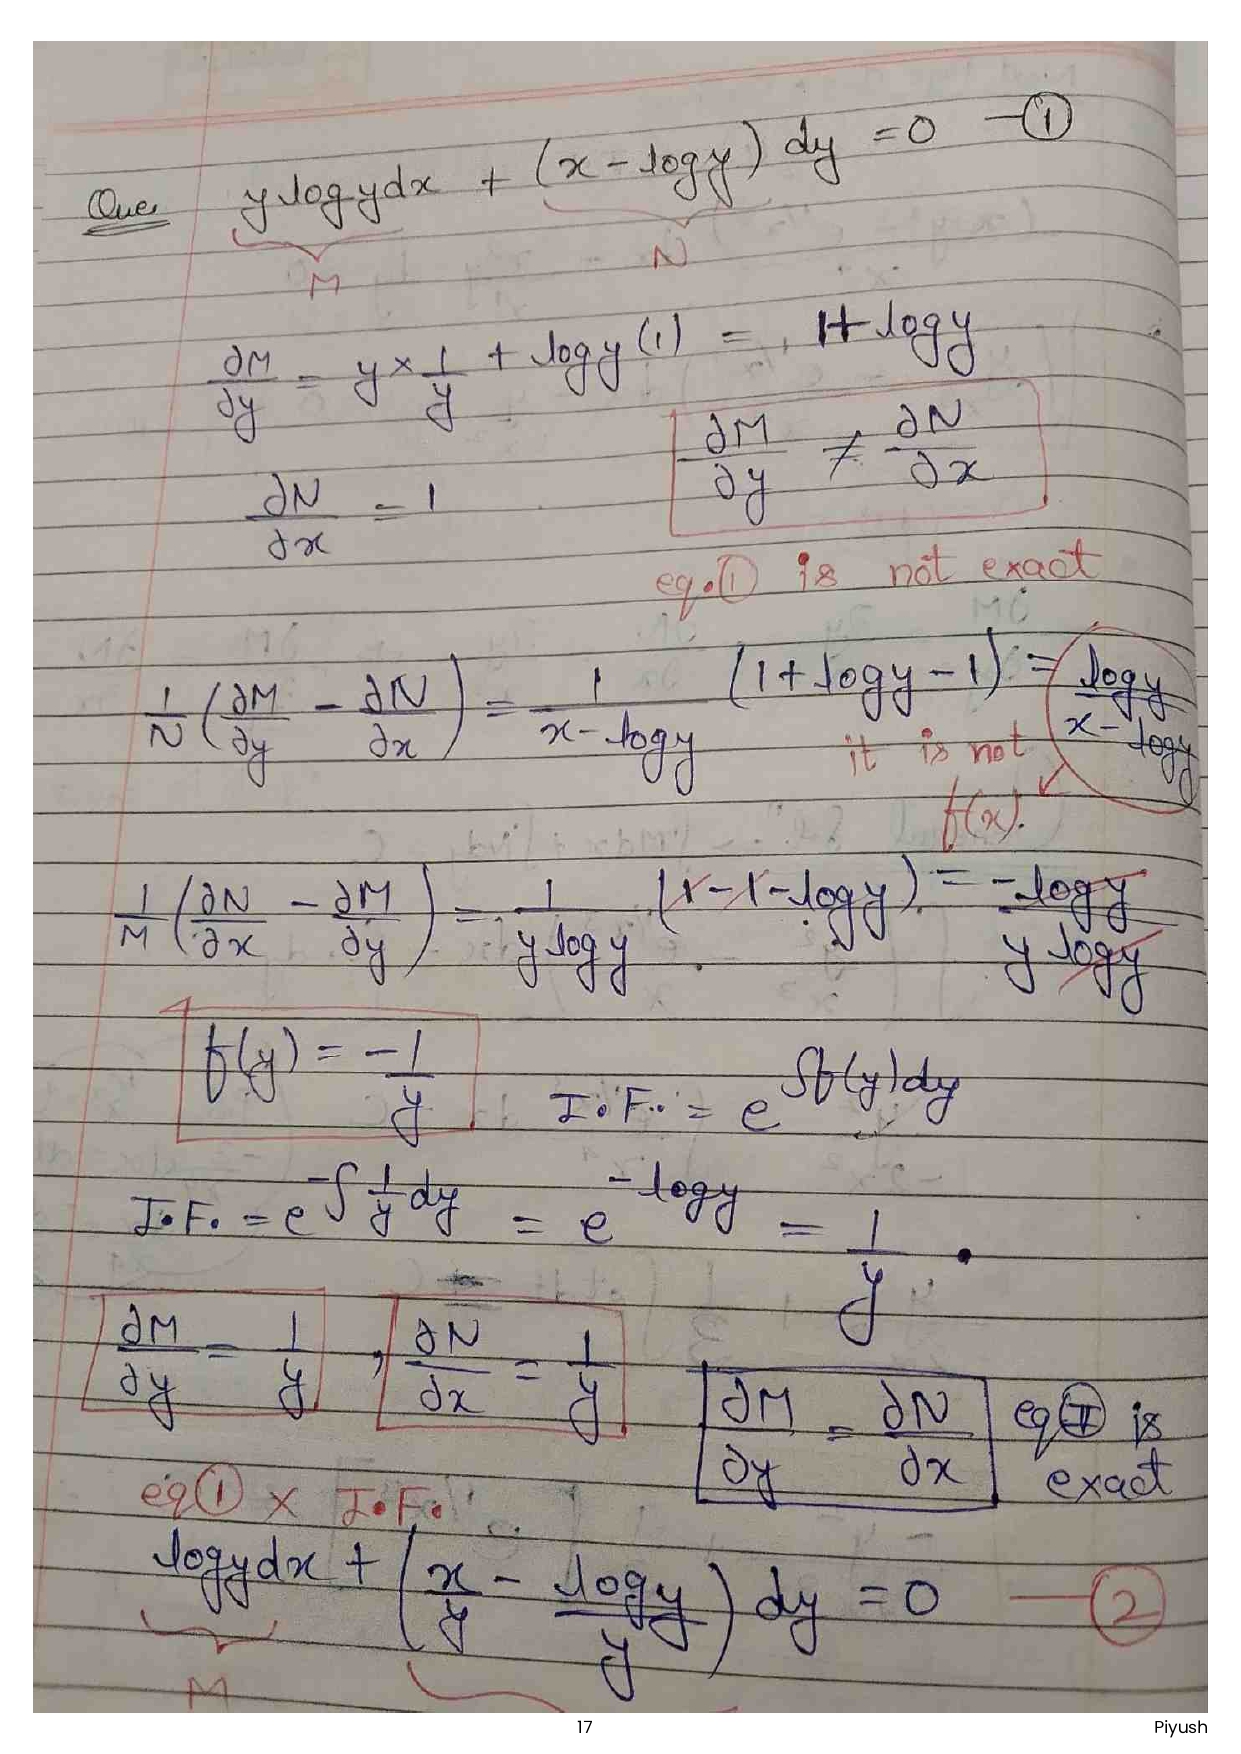 Que. y log y dx + (x - log y) dy = 0 — ①
M N
∂M/∂y = y × 1/y + log y (1) = 1 + log y
∂N/∂x = 1
∂M/∂y ≠ ∂N/∂x
eq. ① is not exact
1/N (∂M/∂y - ∂N/∂x) = 1/(x - log y) (1 + log y - 1) = log y/(x - log y)
it is not
f(x).
1/M (∂N/∂x - ∂M/∂y) = 1/(y log y) (1 - 1 - log y) = -log y/(y log y)
f(y) = -1/y
I.F. = e^∫f(y)dy
I.F. = e^-∫1/y dy = e^-log y = 1/y .
∂M/∂y = 1/y , ∂N/∂x = 1/y
∂M/∂y = ∂N/∂x eq Ⅱ is
exact
eq ① × I.F.
log y dx + (x/y - log y/y) dy = 0 — ②
M
17 Piyush